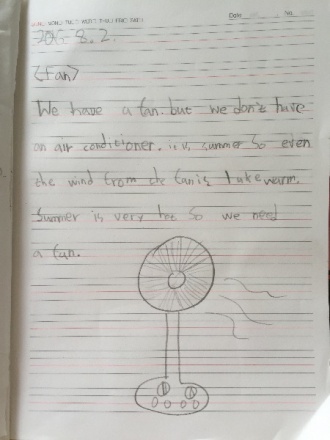 Date No.
8. 2.
<Fan>
We have a fan. but we don't have
an air conditioner. it is summer so even
the wind from the fan is lukewarm.
Summer is very hot so we need
a fan.